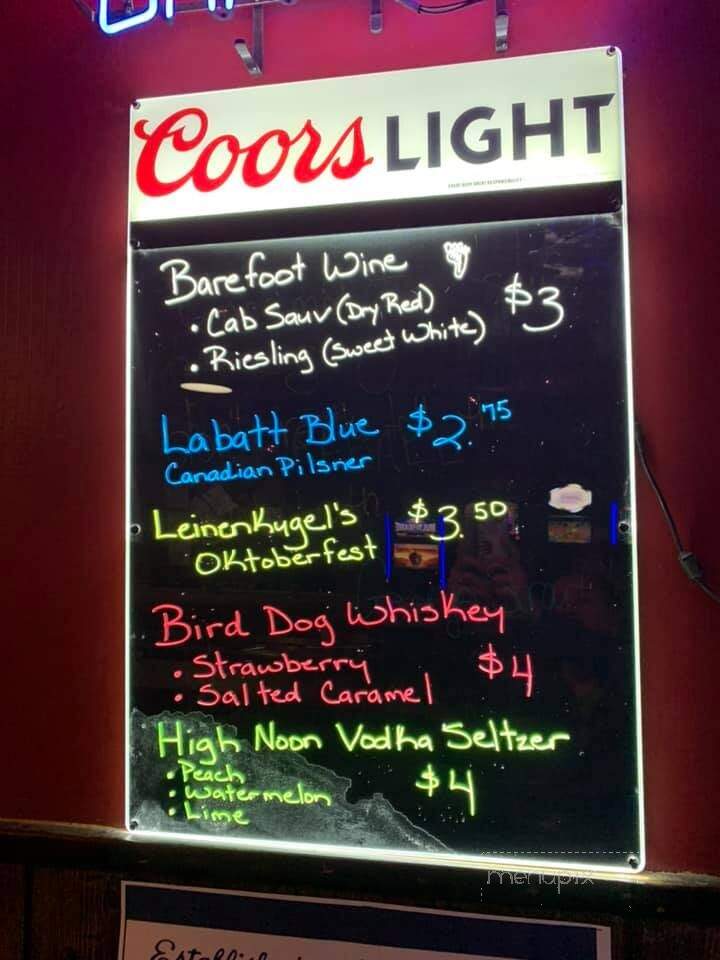 Coors LIGHT
Barefoot Wine
• Cab Sauv (Dry Red) $3
• Riesling (Sweet White)
Labatt Blue $2.75
Canadian Pilsner
Leinenkugel's $3.50
Oktoberfest
Bird Dog Whiskey
• Strawberry $4
• Salted Caramel
High Noon Vodka Seltzer
• Peach $4
• Watermelon
• Lime
menupix